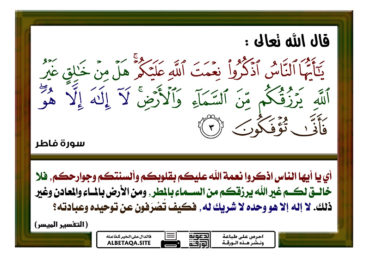 قال الله تعالى :
يَٰٓأَيُّهَا ٱلنَّاسُ ٱذۡكُرُواْ نِعۡمَتَ ٱللَّهِ عَلَيۡكُمۡۚ هَلۡ مِنۡ خَٰلِقٍ غَيۡرُ
ٱللَّهِ يَرۡزُقُكُم مِّنَ ٱلسَّمَآءِ وَٱلۡأَرۡضِۚ لَآ إِلَٰهَ إِلَّا هُوَۖ
فَأَنَّىٰ تُؤۡفَكُونَ ٣
سورة فاطر
أي يا أيها الناس اذكروا نعمة الله عليكم بقلوبكم وألسنتكم وجوارحكم، فلا
خالق لكم غير الله يرزقكم من السماء بالمطر، ومن الأرض بالماء والمعادن وغير
ذلك. لا إله إلا هو وحده لا شريك له، فكيف تُصْرفون عن توحيده وعبادته؟
(التفسير الميسر)
احرص على طباعة
ونشر هذه الورقة
ALBETAQA.SITE